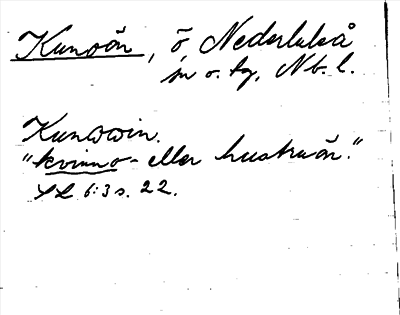 Kunoön, ö, Nederluleå
sn o. tg, Nb. l.
Kunooin.
"kvinno- eller hustruön."
SL 6:3 s. 22.